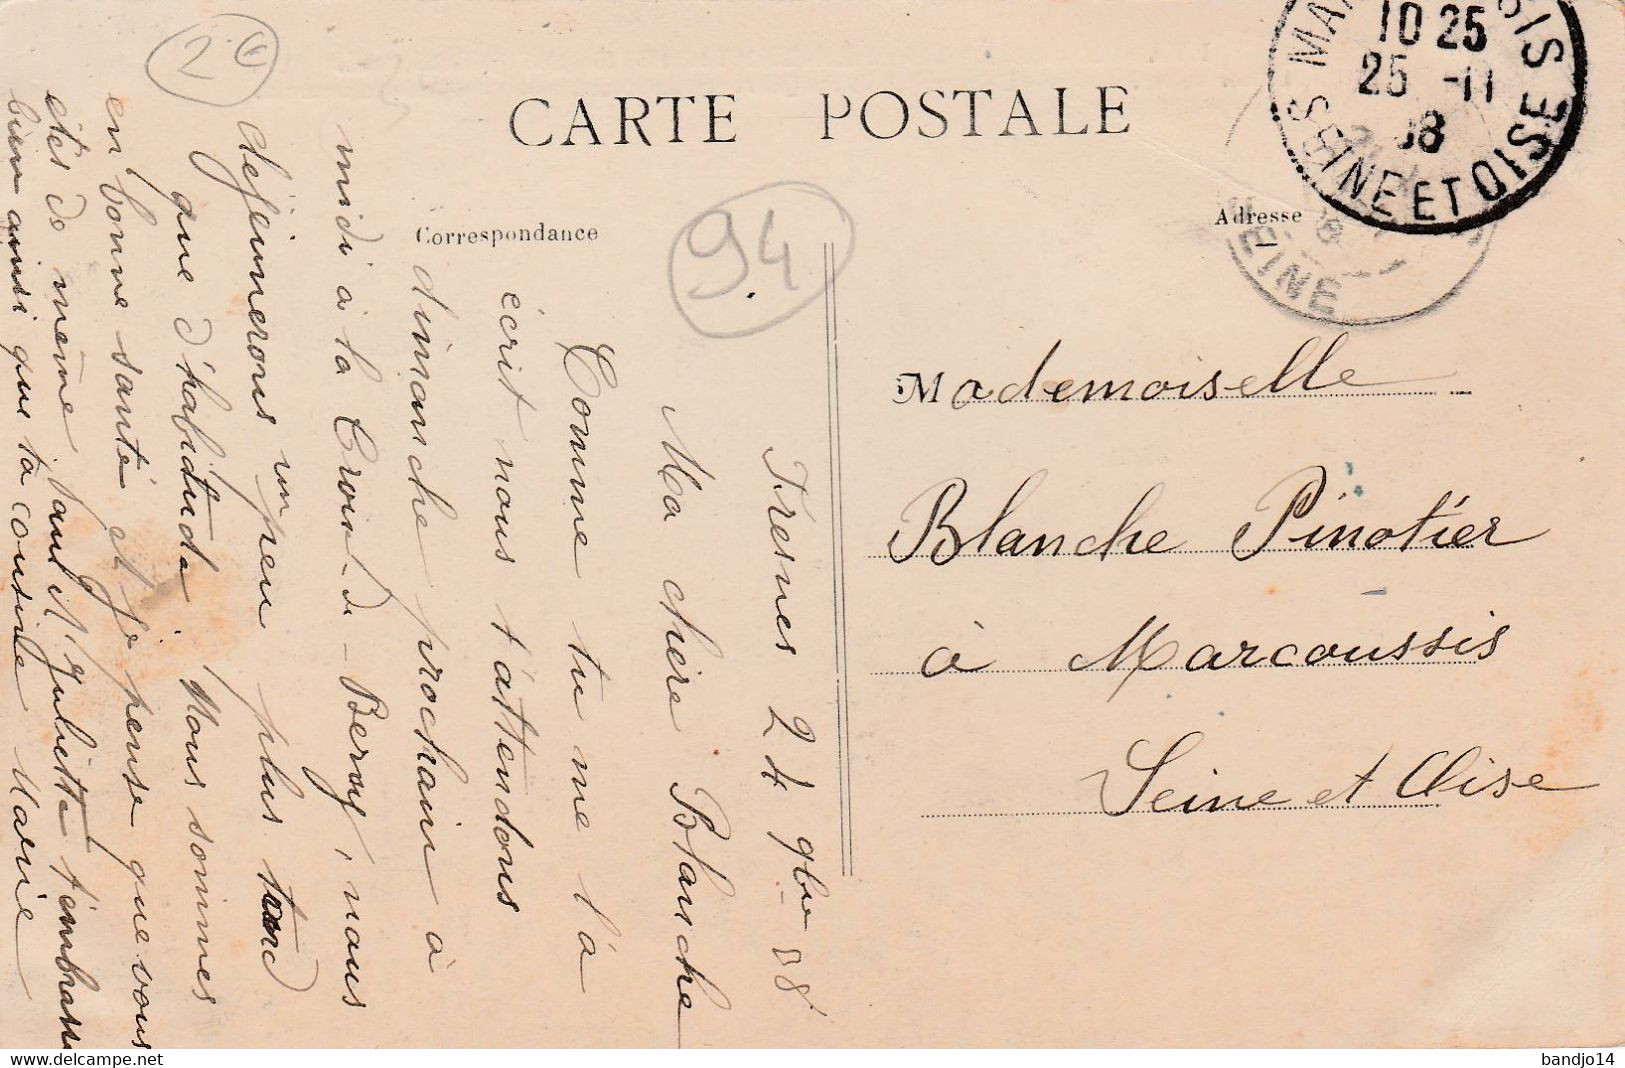 CARTE POSTALE
Correspondance
Adresse
2 €
94
10 25
25 -11
08
SEINE ET OISE
SEINE
Mademoiselle
Blanche Pinotier
à Marcoussis
Seine et Oise
Fresnes 24 9bre 08
Ma chère Blanche
Comme tu me l'a
écrit nous t'attendons
dimanche prochain à
midi à la Croix-de-Berny, nous
déjeunerons un peu plus tard
que d'habitude. Nous sommes
en bonne santé et je pense que vous
êtes de même. Paul et Juliette t'embrasse
bien ainsi que ta cousine Marie
www.delcampe.net
bandjo14